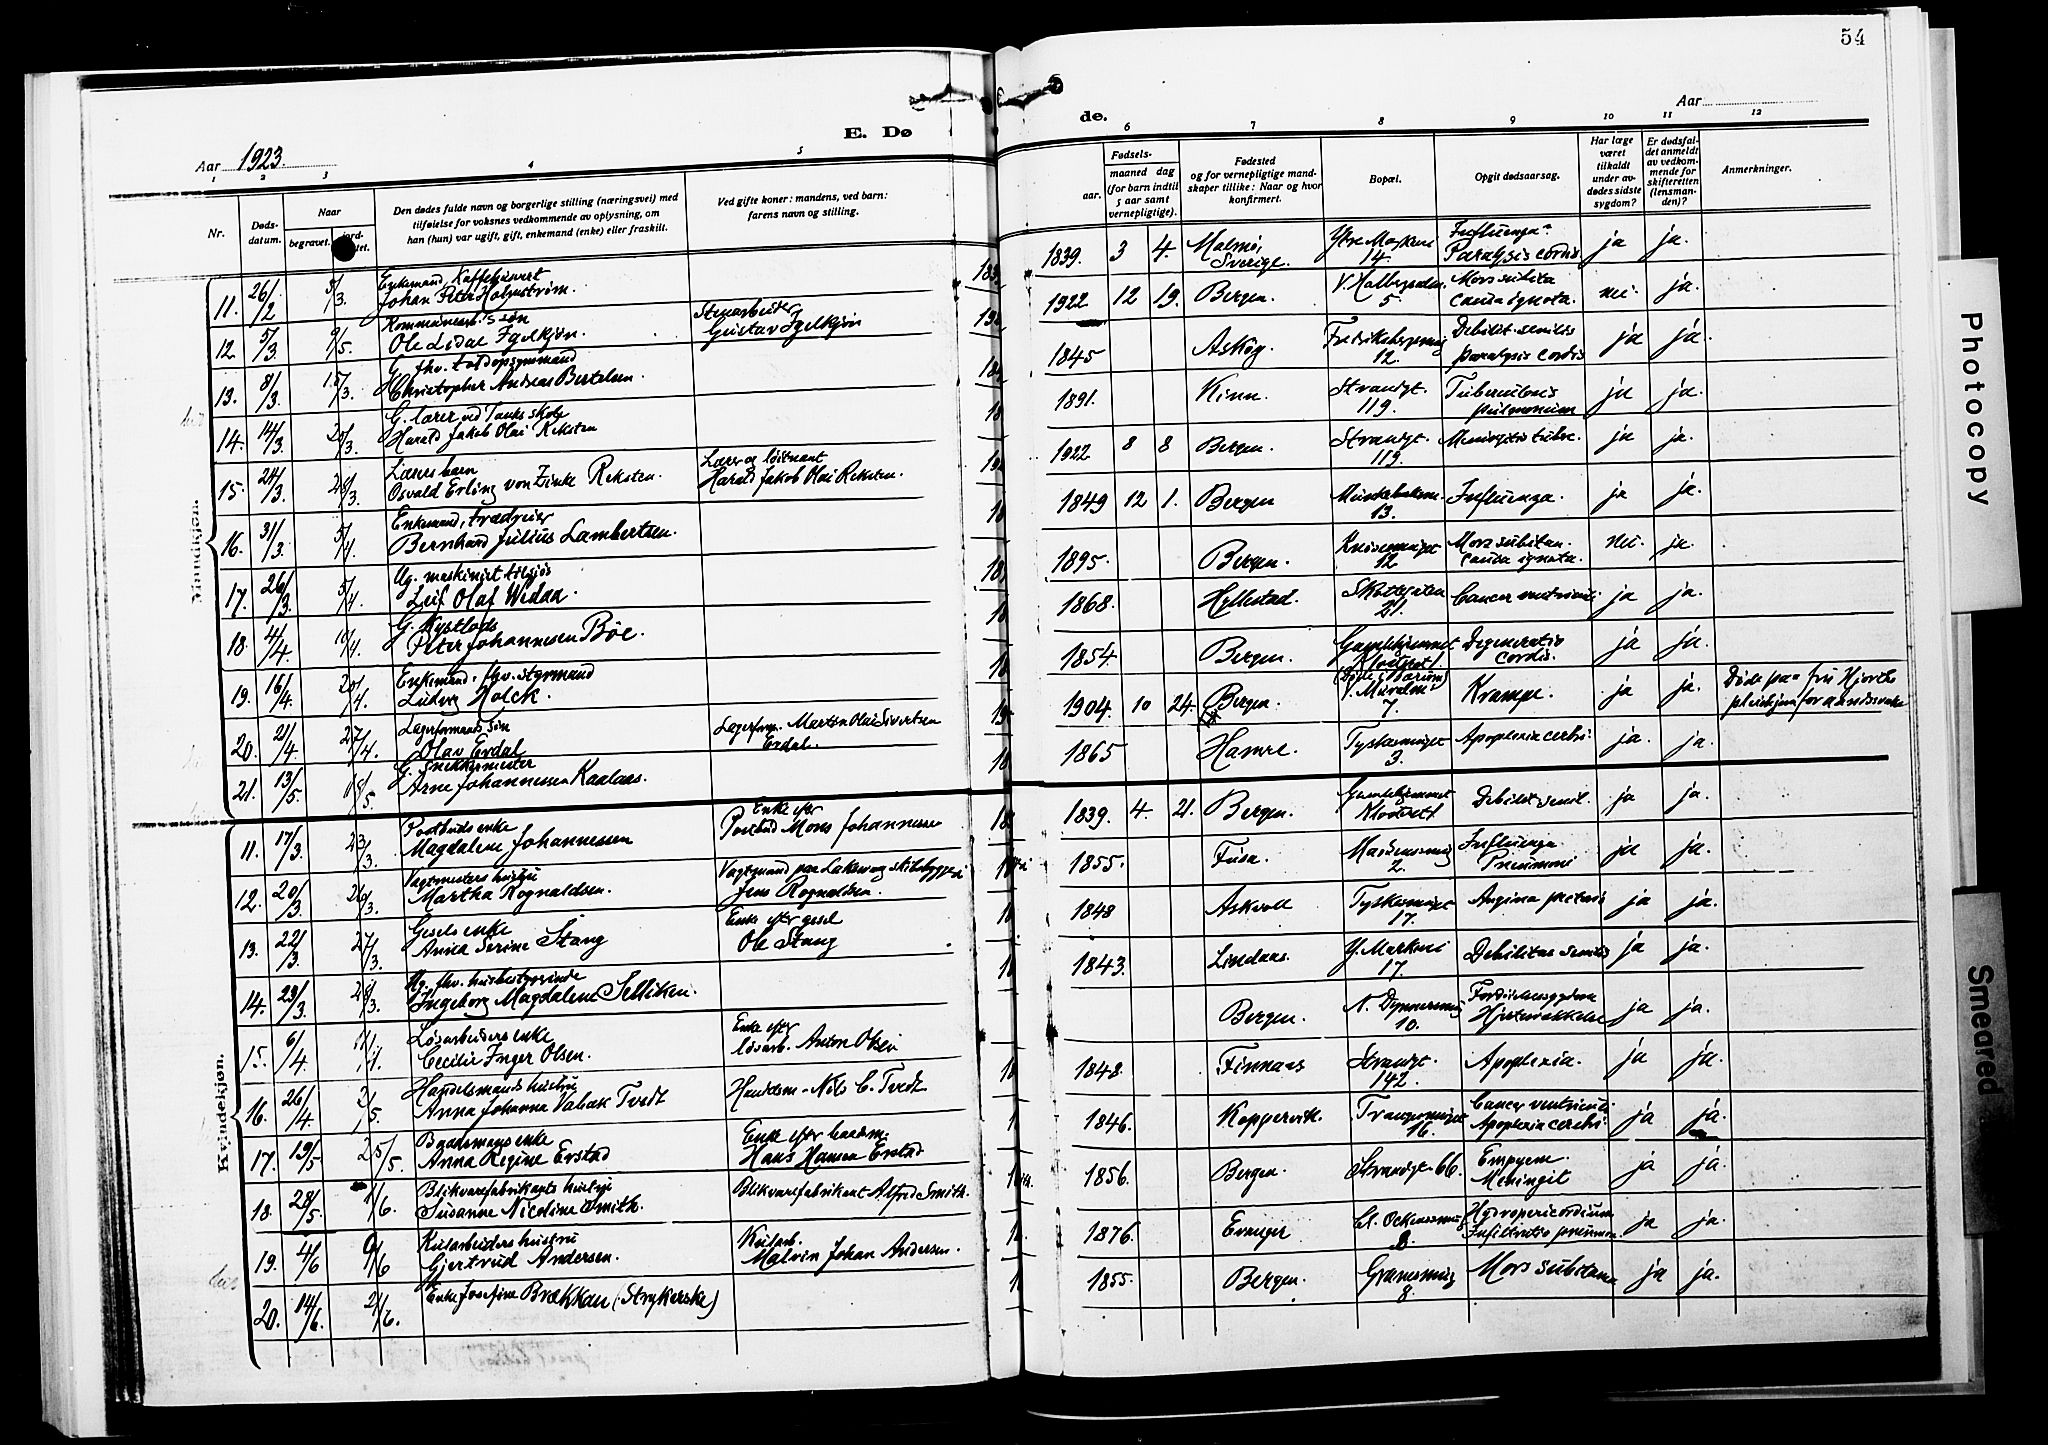 54
E. Dø
de.
Aar 1923.
Aar
1 2 3 4 5
6 7 8 9 10 11 12
Nr.
Døds-
datum.
Naar
begravet.
Den dødes fulde navn og borgerlige stilling (næringsvei) med
tilføielse for voksnes vedkommende av oplysning, om
han (hun) var ugift, gift, enkemand (enke) eller fraskilt.
Ved gifte koner: mandens, ved barn:
farens navn og stilling.
Fødsels-
aar. maaned dag
(for barn indtil
5 aar samt
vernepligtige).
Fødested
og for vernepligtige mand-
skaper tillike: Naar og hvor
konfirmert.
Bopæl.
Opgit dødsaarsag.
Har læge
været
tilkaldt
under av-
dødes sidste
sygdom?
Er dødsfal-
det anmeldt
av vedkom-
mende for
skifteretten
(lensman-
den)?
Anmerkninger.
Mandkjøn.
11. 26/2 5/3. Enkemand,
Johan Peter Holmstrøm.
1839. 3 4. Malmø, Sverige. 14. Influenza Paralysis cordis ja ja.
12 5/3. 9/5. søn
Ole Lidal Igelkjøn. Gustav Igelkjøn
1922 12 19. Bergen. 5. Mors subita causa ignota. nei. ja.
13. 8/3. 15/3. G. fhv. toldopsynsmand
Christopher Andreas Bertelsen.
1845 Askøy. 12. Debilit. senilis paralysis cordis ja ja.
14. 14/3. 20/3. G. lærer ved Tanks skole
Harald Jakob Olai Reksten
1891. Kinn. Strandgt. 119. Tuberculosis pulmonum ja ja.
15. 24/3. 28/3. Lærers barn
Osvald Erling von Zinke Reksten. Lærer og løitnant
Harald Jakob Olai Reksten.
1922 8 8 Bergen. Strandgt. 119. Meningitis tuberc. ja ja.
16. 31/3. 5/4. Enkemand,
Bernhard Julius Lambertsen.
1849 12 1. Bergen 13. Influenza. ja ja.
17. 26/3. 5/4. Ug. maskinist tilsjøs
Leif Olaf Widaa.
1895. Bergen. 12 Mors subitan. causa ignota. nei. ja.
18. 4/4. 10/4. G. Kystlods
Peter Johannesen Bøe.
1868. Hyllestad. Skottegaten 21. Cancer ventriculi ja ja.
19. 16/4. 20/4. Enkemand, fhv. styrmand
Ludvig Holck.
1854. Bergen. Gamlehjemmet Degeneratio cordis. ja ja.
20. 21/4. 27/4. Lagerformands søn
Olav Erdal Lagerform. Marten Olai Sivertsen
Erdal.
1904. 10 24. Bergen. 7. Krampe. ja ja. Døde paa fru Hjorths
pleiehjem for aandssvake
21. 13/5. 18/5. G. Snekkermester
Arne Johannessen Kaalaas.
1865 Hamre. Tyskesmuget 3. Apoplexia cerebri. ja. ja.
Kvindekjøn.
11. 17/3. 23/3. Postbuds enke
Magdalene Johannessen Enke efter
Postbud Mons Johannessen
1839. 4. 21. Bergen. Gamlehjemmet Debilit. senil. ja ja.
12. 20/3. 26/3. Vagtmesters hustru
Martha Rognaldsen. Vagtmand paa Laksevaag skibsbyggeri
Jens Rognaldsen.
1855. Fusa. 2. Influenza Pneumoni ja ja.
13. 22/3. 27/3. Gesels enke
Anna Serine Stang Enke efter gesel
Ole Stang
1848 Askvoll Tyskesmuget 17. Angina pectoris ja ja.
14. 23/3. 28/3. Ug. fhv. husbestyrerinde
Ingeborg Magdalene Selliken.
1843. Lindaas. Y. Markvei 17. Debilitas senilis ja ja.
15. 6/4. Løsarbeiders enke
Cecilie Inger Olsen. Enke efter
løsarb. Anton Olsen
Bergen. 10. Hjertesvakkelse ja ja.
16. 26/4. 2/5. Handelsmands hustru
Anna Johanna Valask Tvedt Handelsm. Nils C. Tvedt
1848. Finnaas Strandgt. 142. Apoplexia. ja ja.
17. 19/5 25/5. Baadsmans enke
Anna Regine Erstad Enke efter baadsm.
Hans Hansen Erstad
1846. Koppervik. 16. Cancer ventriculi Apoplexia cerebri. ja ja.
18. 28/5. 1/6. Blikvarefabrikants hustru
Susanne Nicoline Smith. Blikvarefabrikant Alfred Smith.
1856. Bergen. Strandgt. 66. Empyem. Meningit ja ja.
19. 4/6 9/6 Kularbeiders hustru
Gjertrud Andersen. Kularb.
Malvin Johan Andersen.
1876. Evanger 8. Hydropericordium ja ja.
20. 14/6. 21/6. Enke Josefine Brækkan (Strykerske)
1855. Bergen. 8. Mors subitanea ja ja.
Photocopy
Smeared